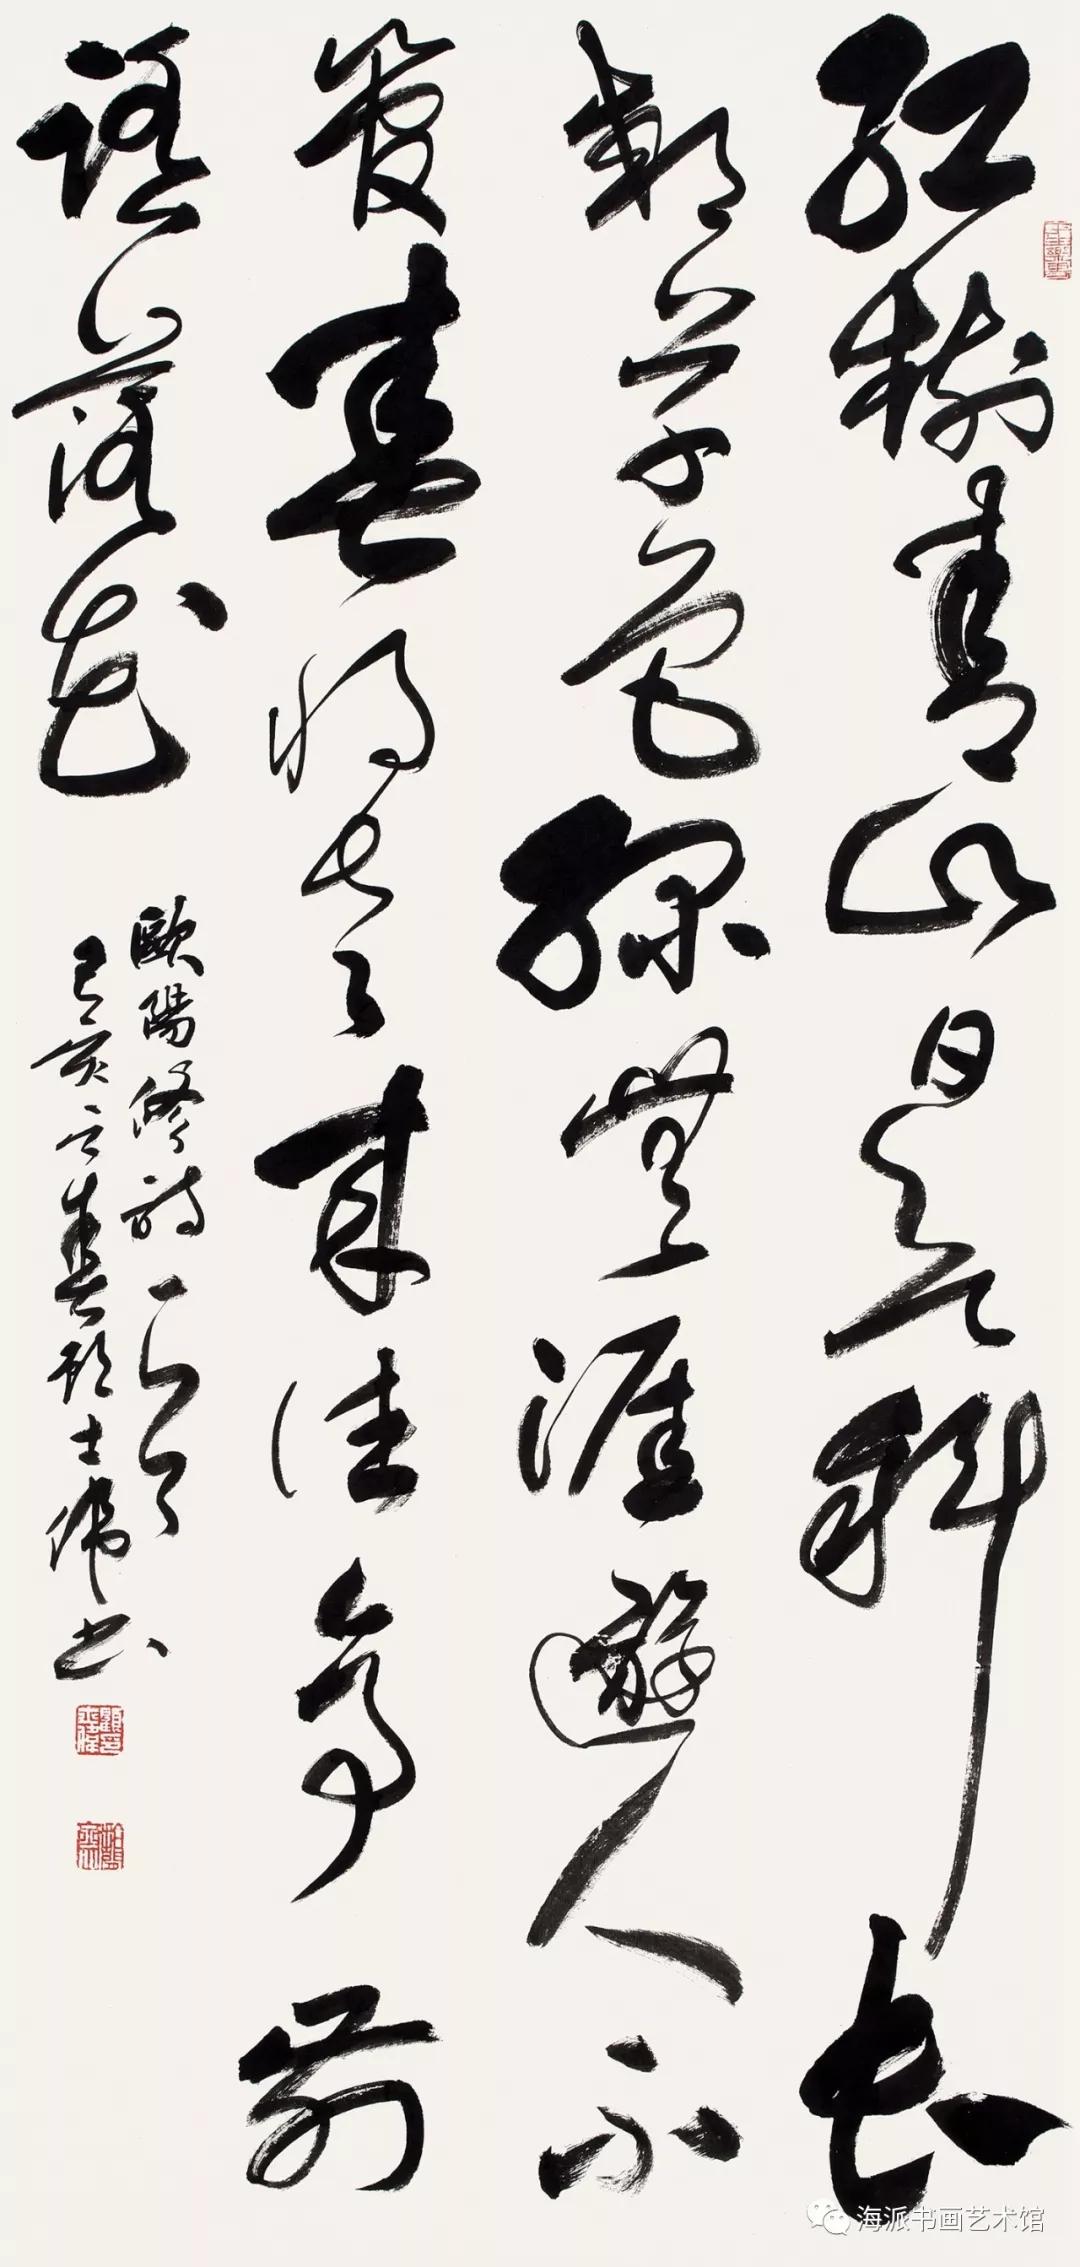 紅樹青山日欲斜長
郊草色綠無涯遊人不
管春將老來往亭前
踏落花
歐陽修詩一首
己亥立春顧士偉書
海派书画艺术馆